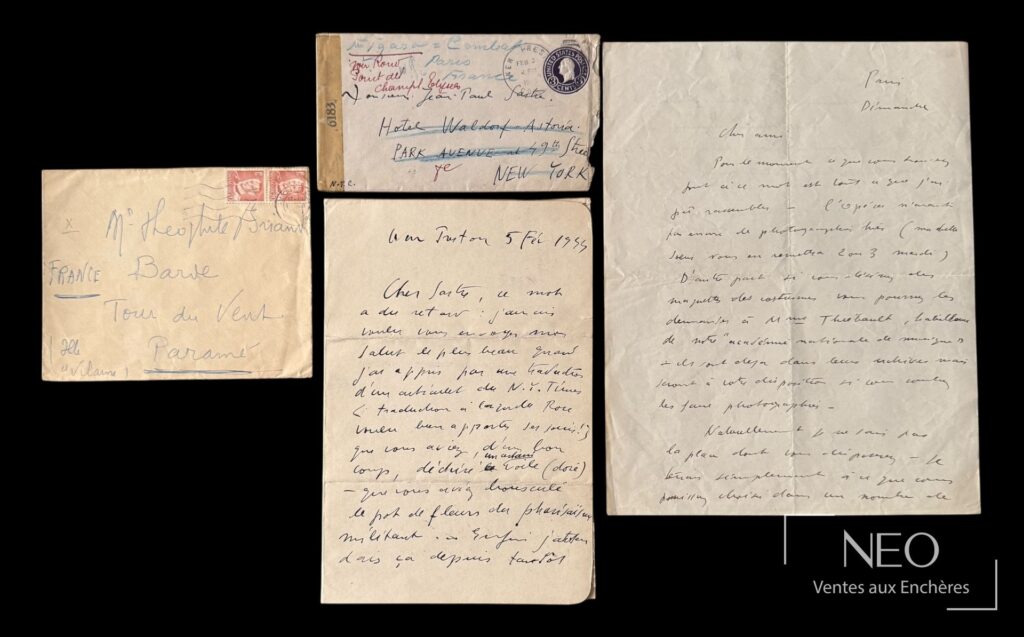 Mr Theophile Briant
FRANCE
Barde
Tour du Vent
Paramé
Ille
Vilaine
Figaro = Combat
Paris
France
Rond
Point des
Champs Elysées
6183
Monsieur Jean-Paul Sartre
Hotel Waldorf-Astoria
PARK AVENUE at 49th Street
NEW YORK
N.Y.C.
UNITED STATES
CENTS
5 Fév 1945
Cher Sartre, ce mot
a du retard : j'aurais
voulu vous envoyer mon
salut le plus beau quand
j'ai appris par une traduction
d'un articulet du N.Y. Times
(traduction à laquelle Rose
voulu bien apporter ses soins!)
que vous aviez, d'un bon
coup, déchiré le voile (doré)
– que vous aviez bousculé
le pot de fleurs du pharisaïsme
militant. Enfin j'attends
dans ça depuis tantôt
Paris
Dimanche
Cher ami
Pour le moment ce que vous
joint à ce mot est tout ce que j'ai
pu rassembler – l'Opéra n'ayant
pas encore de photographies
vous en remettra 2 ou 3 mardi)
D'autre part si vous désirez des
maquettes des costumes vous pourrez les
demander à Mme Thiébault, habilleuse
de notre "académie nationale de musique"
– ils sont déjà dans leurs archives mais
seront à votre disposition si vous voulez
les faire photographier –
Naturellement je ne sais pas
la place dont vous disposez – Je
tiens simplement à ce que vous
puissiez choisir dans un nombre de
NEO
Ventes aux Enchères